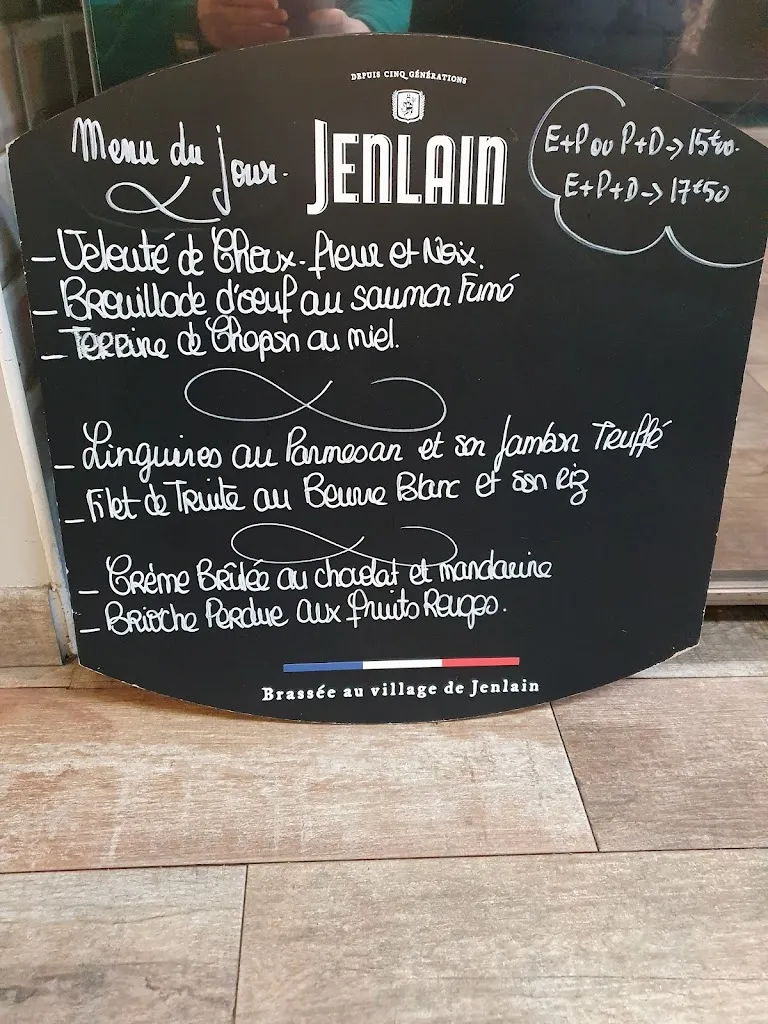 DEPUIS CINQ GÉNÉRATIONS
Menu du jour.
JENLAIN
E+P ou P+D -> 15€00.
E+P+D -> 17€50
- Velouté de Choux-fleur et Noix.
- Brouillade d'oeuf au saumon Fumé
- Terrine de Chapon au miel.
- Linguines au Parmesan et son Jambon Truffé
- Filet de Truite au Beurre Blanc et son riz
- Crème Brûlée au chocolat et mandarine
- Brioche Perdue aux fruits Rouges.
Brassée au village de Jenlain